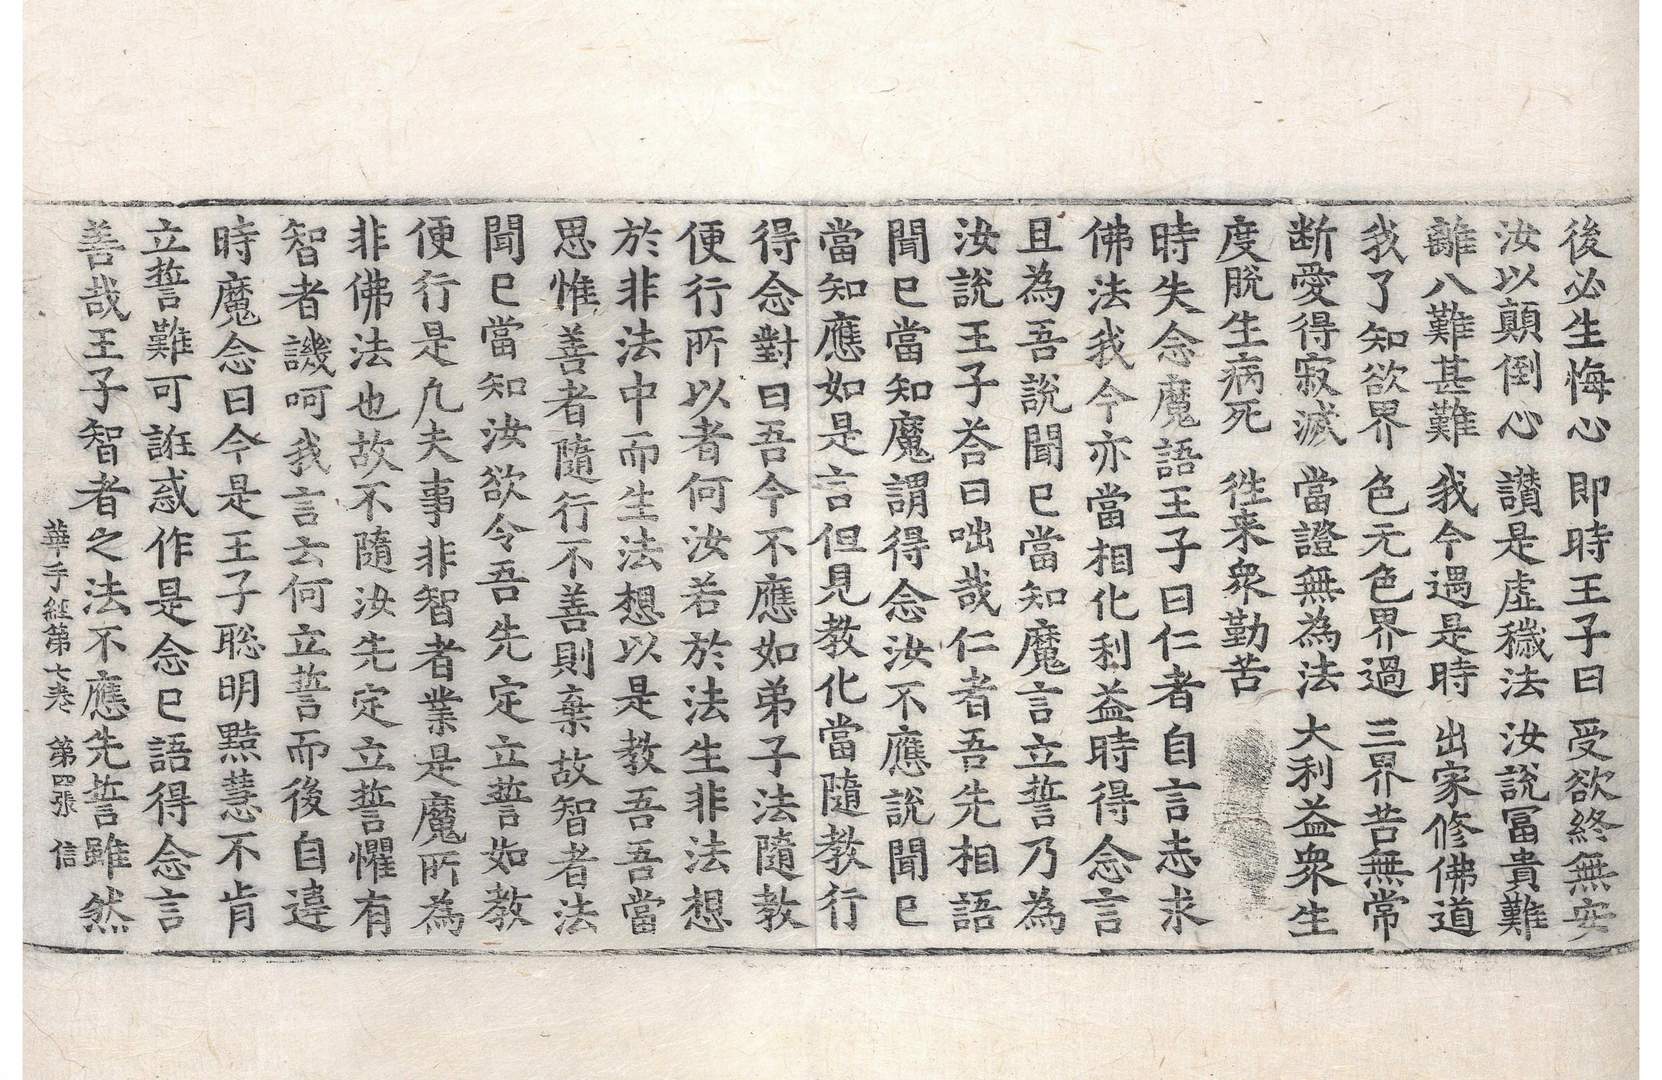 後必生悔心　即時王子曰　受欲終無安
汝以顛倒心　讃是虛穢法　汝說冨貴難
離八難甚難　我今遇是時　出家修佛道
我了知欲界　色无色界過　三界苦無常
断愛得寂滅　當證無為法　大利益衆生
度脫生病死　徃来衆勤苦
時失念魔語王子曰仁者自言志求
佛法我今亦當相化利益時得念言
且為吾說聞已當知魔言立誓乃為
汝說王子荅曰咄哉仁者吾先相語
聞已當知魔謂得念汝不應說聞已
當知應如是言但見教化當隨教行
得念對曰吾今不應如弟子法隨教
便行所以者何汝若於法生非法想
於非法中而生法想以是教吾吾當
思惟善者隨行不善則棄故智者法
聞已當知汝欲令吾先定立誓如教
便行是凢夫事非智者業是魔所為
非佛法也故不隨汝先定立誓懼有
智者譏呵我言云何立誓而後自違
時魔念曰今是王子聡明黠慧不肯
立誓難可誑惑作是念已語得念言
善哉王子智者之法不應先誓雖然
華手経第七卷　第四張　信